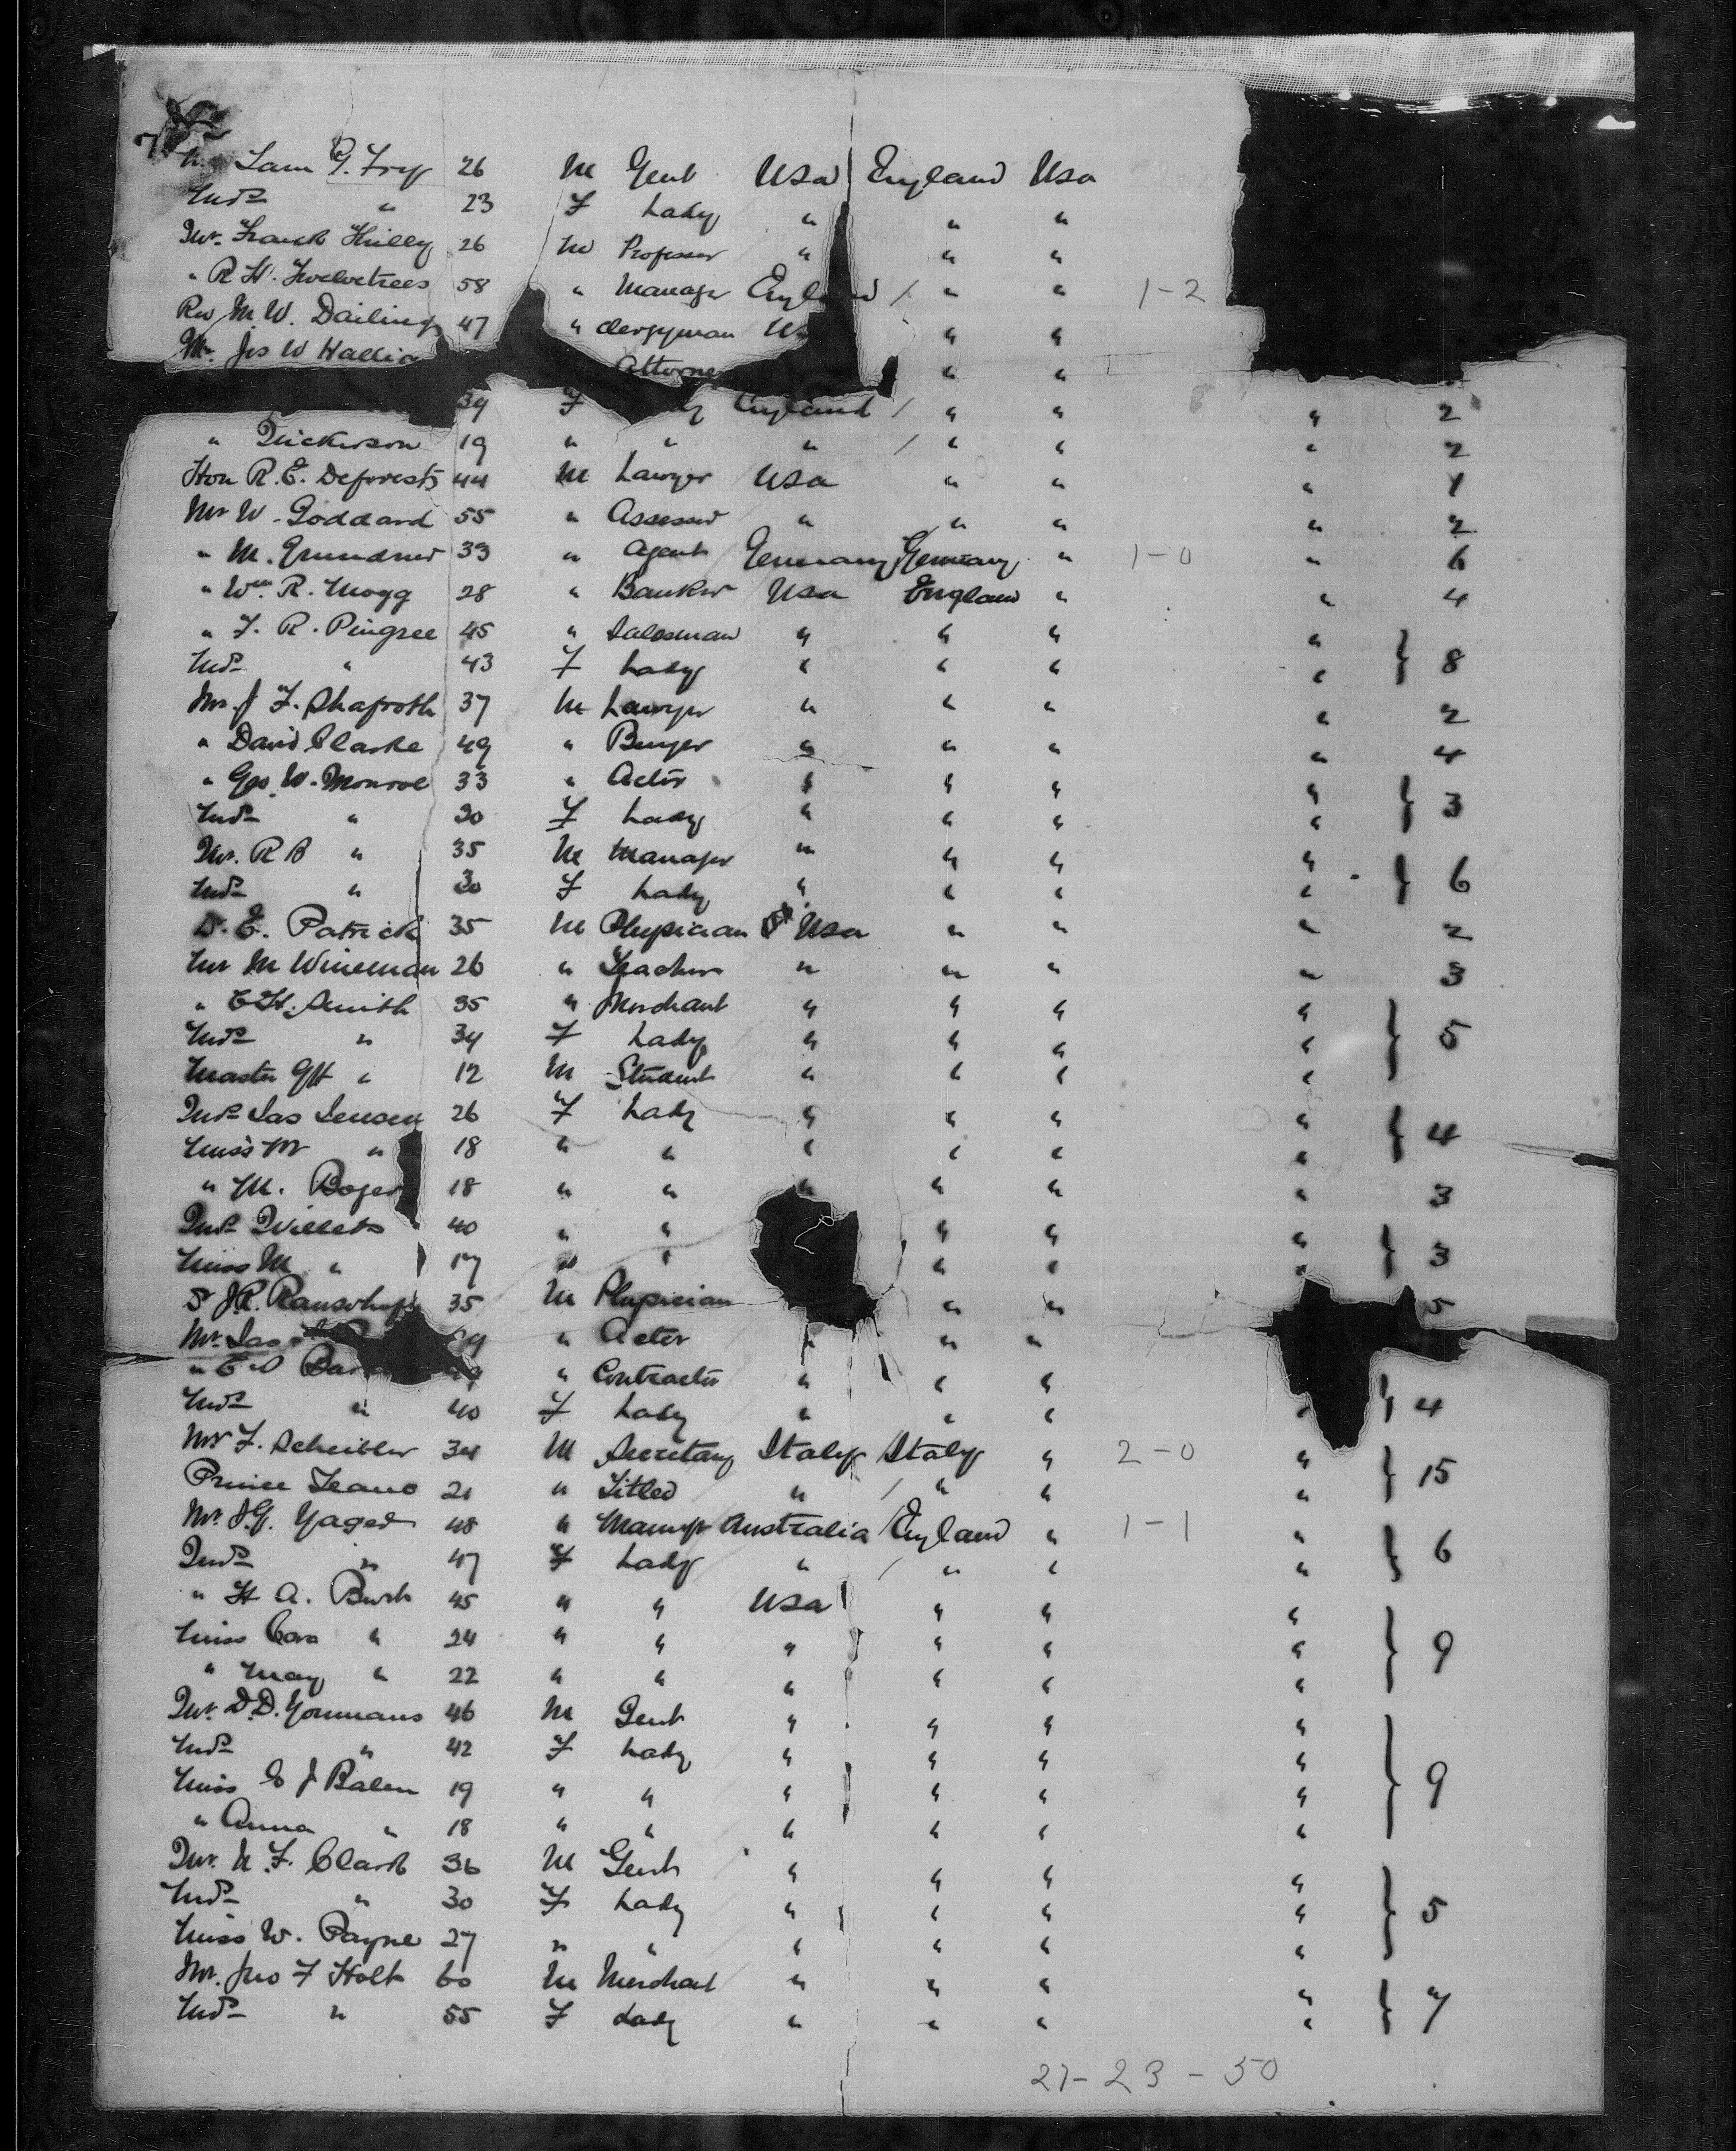 Sam G. Fry 26 M Gent USA England USA
Mrs " 23 F Lady " " "
Mr. Frank Thilly 26 M Professor " " "
" R H. Twelvetrees 58 " Manager England / " " 1-2
Rev M. W. Darling 47 " clergyman " "
Mr. Jos W Attorne " "
39 F England / " " " 2
" Dickerson 19 " " " / " " " 2
Hon R. E. Deforest 44 M Lawyer USA " " " 1
Mr W. Goddard 55 " Assessor " " " " 2
" M. 33 " Agent Germany / Germany " 1-0 " 6
" Wm. R. Mogg 28 " Banker USA England " " 4
" F. R. Pingree 45 " Salesman " " " "
Mrs " 43 F Lady " " " " } 8
Mr. J F. Shafroth 37 M Lawyer " " " " 2
" David Clarke 49 " Buyer " " " " 4
" Geo. W. Monroe 33 " Actor " " " "
Mrs " 30 F Lady " " " " } 3
Mr. R B " 35 M Manager " " " "
Mrs " 30 F Lady " " " " } 6
Dr. E. Patrick 35 M Physician USA " " " 2
Mr M Wineman 26 " Teacher " " " " 3
" E H. Smith 35 " Merchant " " " "
Mrs " 34 F Lady " " " " } 5
Master GH " 12 M Student " " " "
Mrs Jas Jensen 26 F Lady " " " "
Miss M " 18 " " " " " " } 4
" M. Boyer 18 " " " " " " 3
Mrs Willets 40 " " " " "
Miss M " 17 " " " " " } 3
Dr J.R. Ransohoff 35 M Physician " " 5
Mr. Jas " Actor " " "
" E Bar " Contractor " " "
Mrs " 40 F Lady " " " " } 4
Mr F. Scheibler 34 M Secretary Italy / Italy " 2-0 "
Prince Teano 21 " Titled " / " " " } 15
Mr. J.G. Yager 48 " Manufr Australia / England " 1-1 "
Mrs " 47 F Lady " / " " " } 6
" H A. Bush 45 " " USA " " "
Miss Cora " 24 " " " " " " } 9
" May " 22 " " " " " "
Mr. D.D. Youmans 46 M Gent " " " "
Mrs " 42 F Lady " " " "
Miss E J Balen 19 " " " " " " } 9
" Anna " 18 " " " " " "
Mr. N. F. Clark 36 M Gent " " " "
Mrs " 30 F Lady " " " " } 5
Miss W. Payne 27 " " " " " "
Mr. Jno F Holt 60 M Merchant " " " "
Mrs " 55 F Lady " " " " } 7
27-23-50